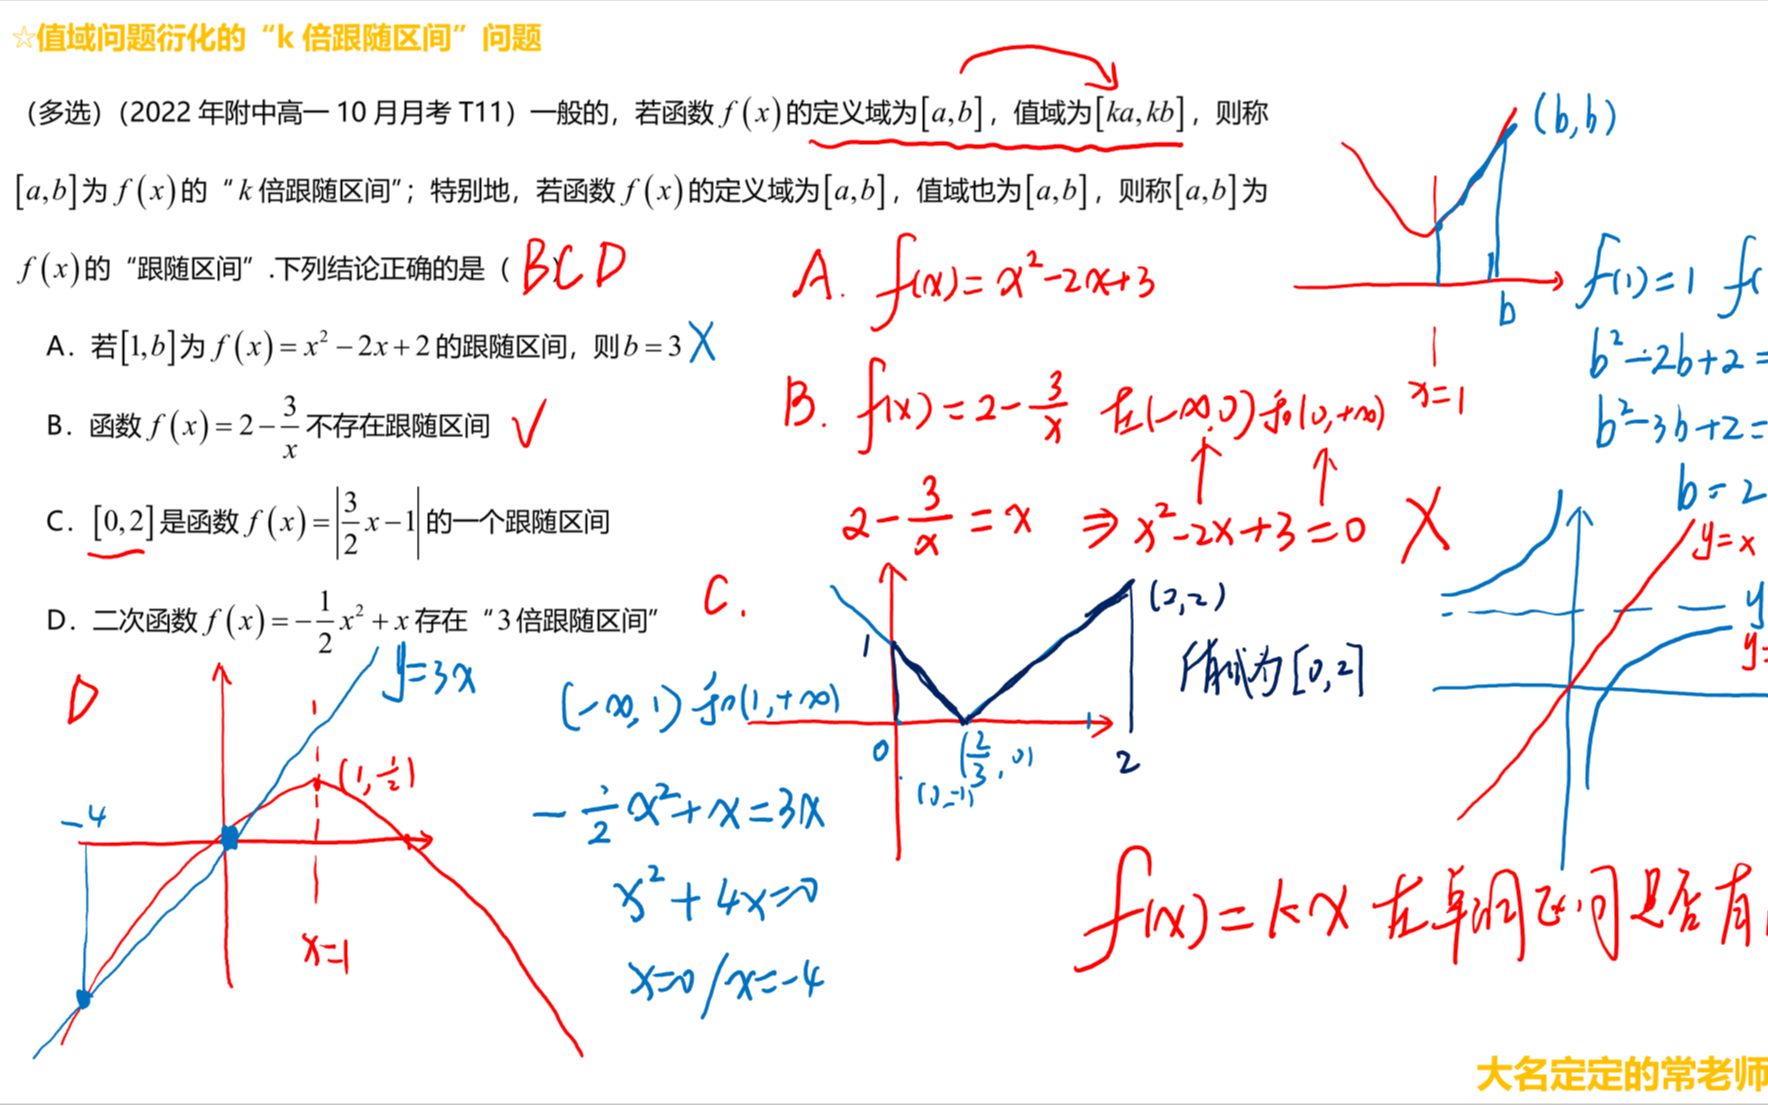 ☆值域问题衍化的“k 倍跟随区间”问题
（多选）（2022 年附中高一 10 月月考 T11）一般的，若函数 f(x) 的定义域为[a,b]，值域为[ka,kb]，则称
[a,b]为 f(x) 的“k 倍跟随区间”；特别地，若函数 f(x) 的定义域为[a,b]，值域也为[a,b]，则称[a,b]为
f(x)的“跟随区间”.下列结论正确的是（ BCD ）
A．若[1,b]为 f(x)=x²−2x+2 的跟随区间，则 b=3 X
B．函数 f(x)=2−3/x 不存在跟随区间 √
C．[0,2]是函数 f(x)=|3/2 x−1| 的一个跟随区间
D．二次函数 f(x)=−1/2 x²+x 存在“3 倍跟随区间”
A. f(x)=x²−2x+3
(b,b)
b
x=1
f(1)=1 f(
b²−2b+2=
b²−3b+2=
b=2
B. f(x)=2−3/x 在(−∞,0)和(0,+∞)
↑ ↑
2−3/x=x ⇒ x²−2x+3=0 X
y=x
y
y=
C.
1
(2,2)
值域为[0,2]
0
(2/3,0)
2
(0,−1)
D
y=3x
(1,1/2)
−4
x=1
(−∞,1)和(1,+∞)
−1/2 x²+x=3x
x²+4x=0
x=0/x=−4
f(x)=kx 在单调区间是否有
大名定定的常老师